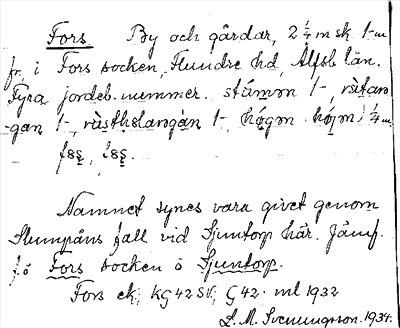 Fors. By och gårdar, 2 1/4 m sk. 1-m
fr. i Fors socken, Flundre hd, Älfsb län.
Fyra jordeb. nummer. stámọn 1-, 
-gan 1-, 1-, hǫ́gọn hǫ́jọn 1/4 m.
Namnet synes vara givet genom
Slumpåns fall vid Sjuntorp här. Jämf.
Fors socken o Sjuntorp.
Fors ek. KG 42 SV, G 42 ml 1932
L. M. Svenungsson. 1934.